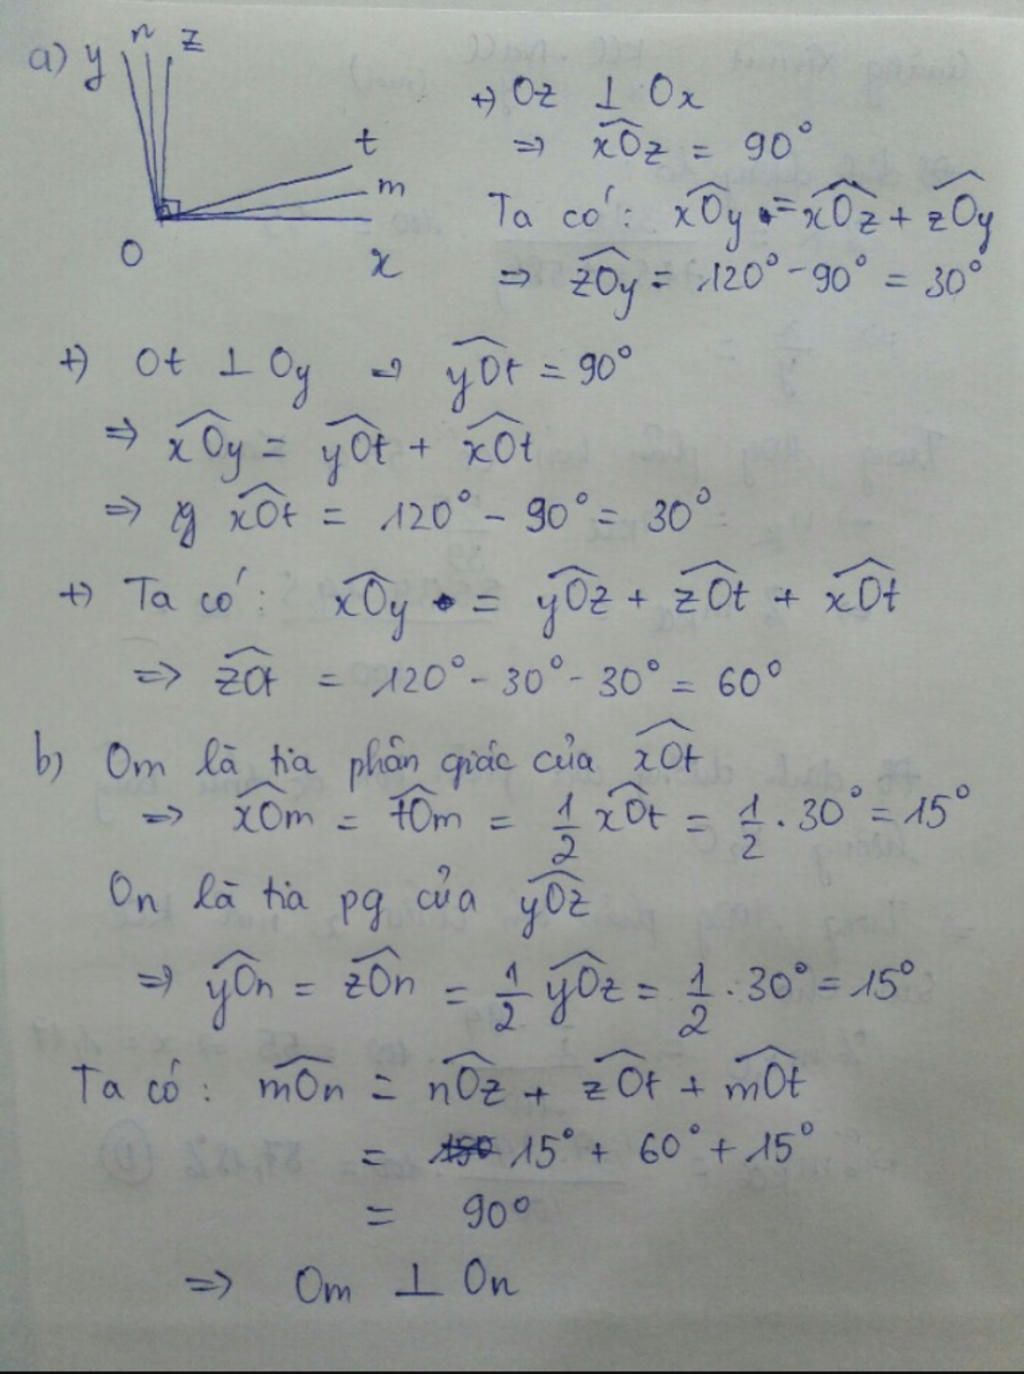 a) y n z
t
m
O x
+) Oz ⊥ Ox
=> xOz = 90°
Ta có: xOy = xOz + zOy
=> zOy = 120° - 90° = 30°
+) Ot ⊥ Oy => yOt = 90°
=> xOy = yOt + xOt
=> xOt = 120° - 90° = 30°
+) Ta có: xOy = yOz + zOt + xOt
=> zOt = 120° - 30° - 30° = 60°
b) Om là tia phân giác của xOt
=> xOm = tOm = 1/2 xOt = 1/2 . 30° = 15°
On là tia pg của yOz
=> yOn = zOn = 1/2 yOz = 1/2 . 30° = 15°
Ta có: mOn = nOz + zOt + mOt
= 15° + 60° + 15°
= 90°
=> Om ⊥ On